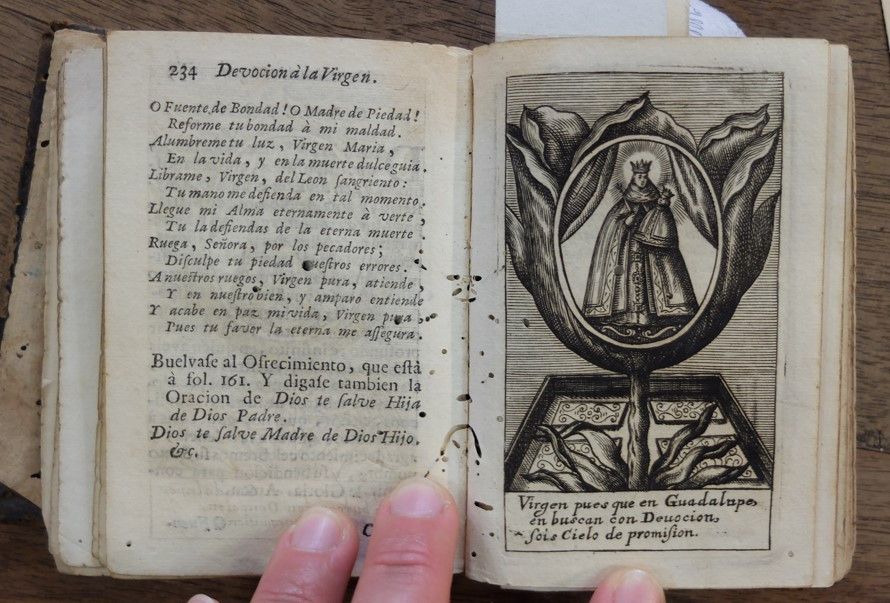 234 Devocion à la Virgen.
O Fuente de Bondad! O Madre de Piedad!
Reforme tu bondad à mi maldad.
Alumbreme tu luz, Virgen Maria,
En la vida, y en la muerte dulce guia.
Librame, Virgen, del Leon ſangriento:
Tu mano me defienda en tal momento.
Llegue mi Alma eternamente à verte,
Tu la defiendas de la eterna muerte.
Ruega, Señora, por los pecadores;
Diſculpe tu piedad nueſtros errores.
A nueſtros ruegos, Virgen pura, atiende,
Y en nueſtro bien, y amparo entiende
Y acabe en paz mi vida, Virgen pura,
Pues tu favor la eterna me aſſegura.
Buelvaſe al Ofrecimiento, que eſtà
à fol. 161. Y digaſe tambien la
Oracion de Dios te ſalve Hija
de Dios Padre.
Dios te ſalve Madre de Dios Hijo.
&c.
Virgen pues que en Guadalupe,
en buscan con Deuocion,
ſois Cielo de promiſion.